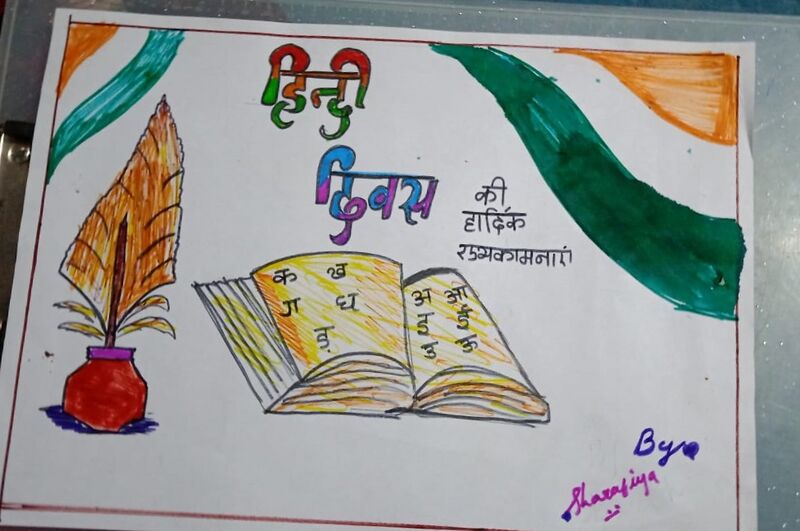 हिन्दी
दिवस
की
हार्दिक
शुभकामनाएं
क ख
ग घ
ङ
अ आ
इ ई
उ ऊ
By
Sharafiya